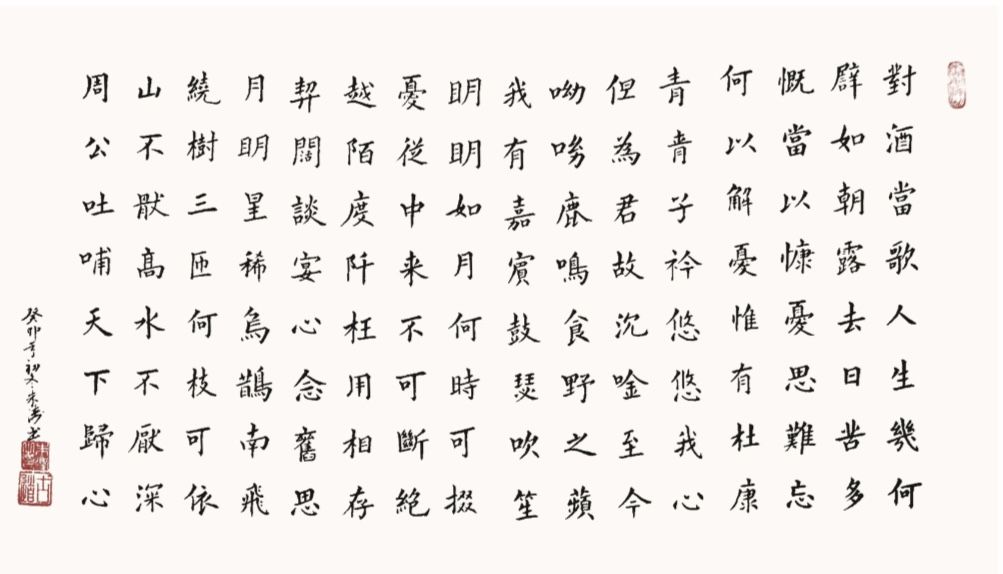 對酒當歌人生幾何
譬如朝露去日苦多
慨當以慷憂思難忘
何以解憂惟有杜康
青青子衿悠悠我心
但為君故沉唫至今
呦呦鹿鳴食野之蘋
我有嘉賓鼓瑟吹笙
明明如月何時可掇
憂從中来不可斷絕
越陌度阡枉用相存
契闊談宴心念舊恩
月明星稀烏鵲南飛
繞樹三匝何枝可依
山不猒高水不厭深
周公吐哺天下歸心
癸卯年初冬